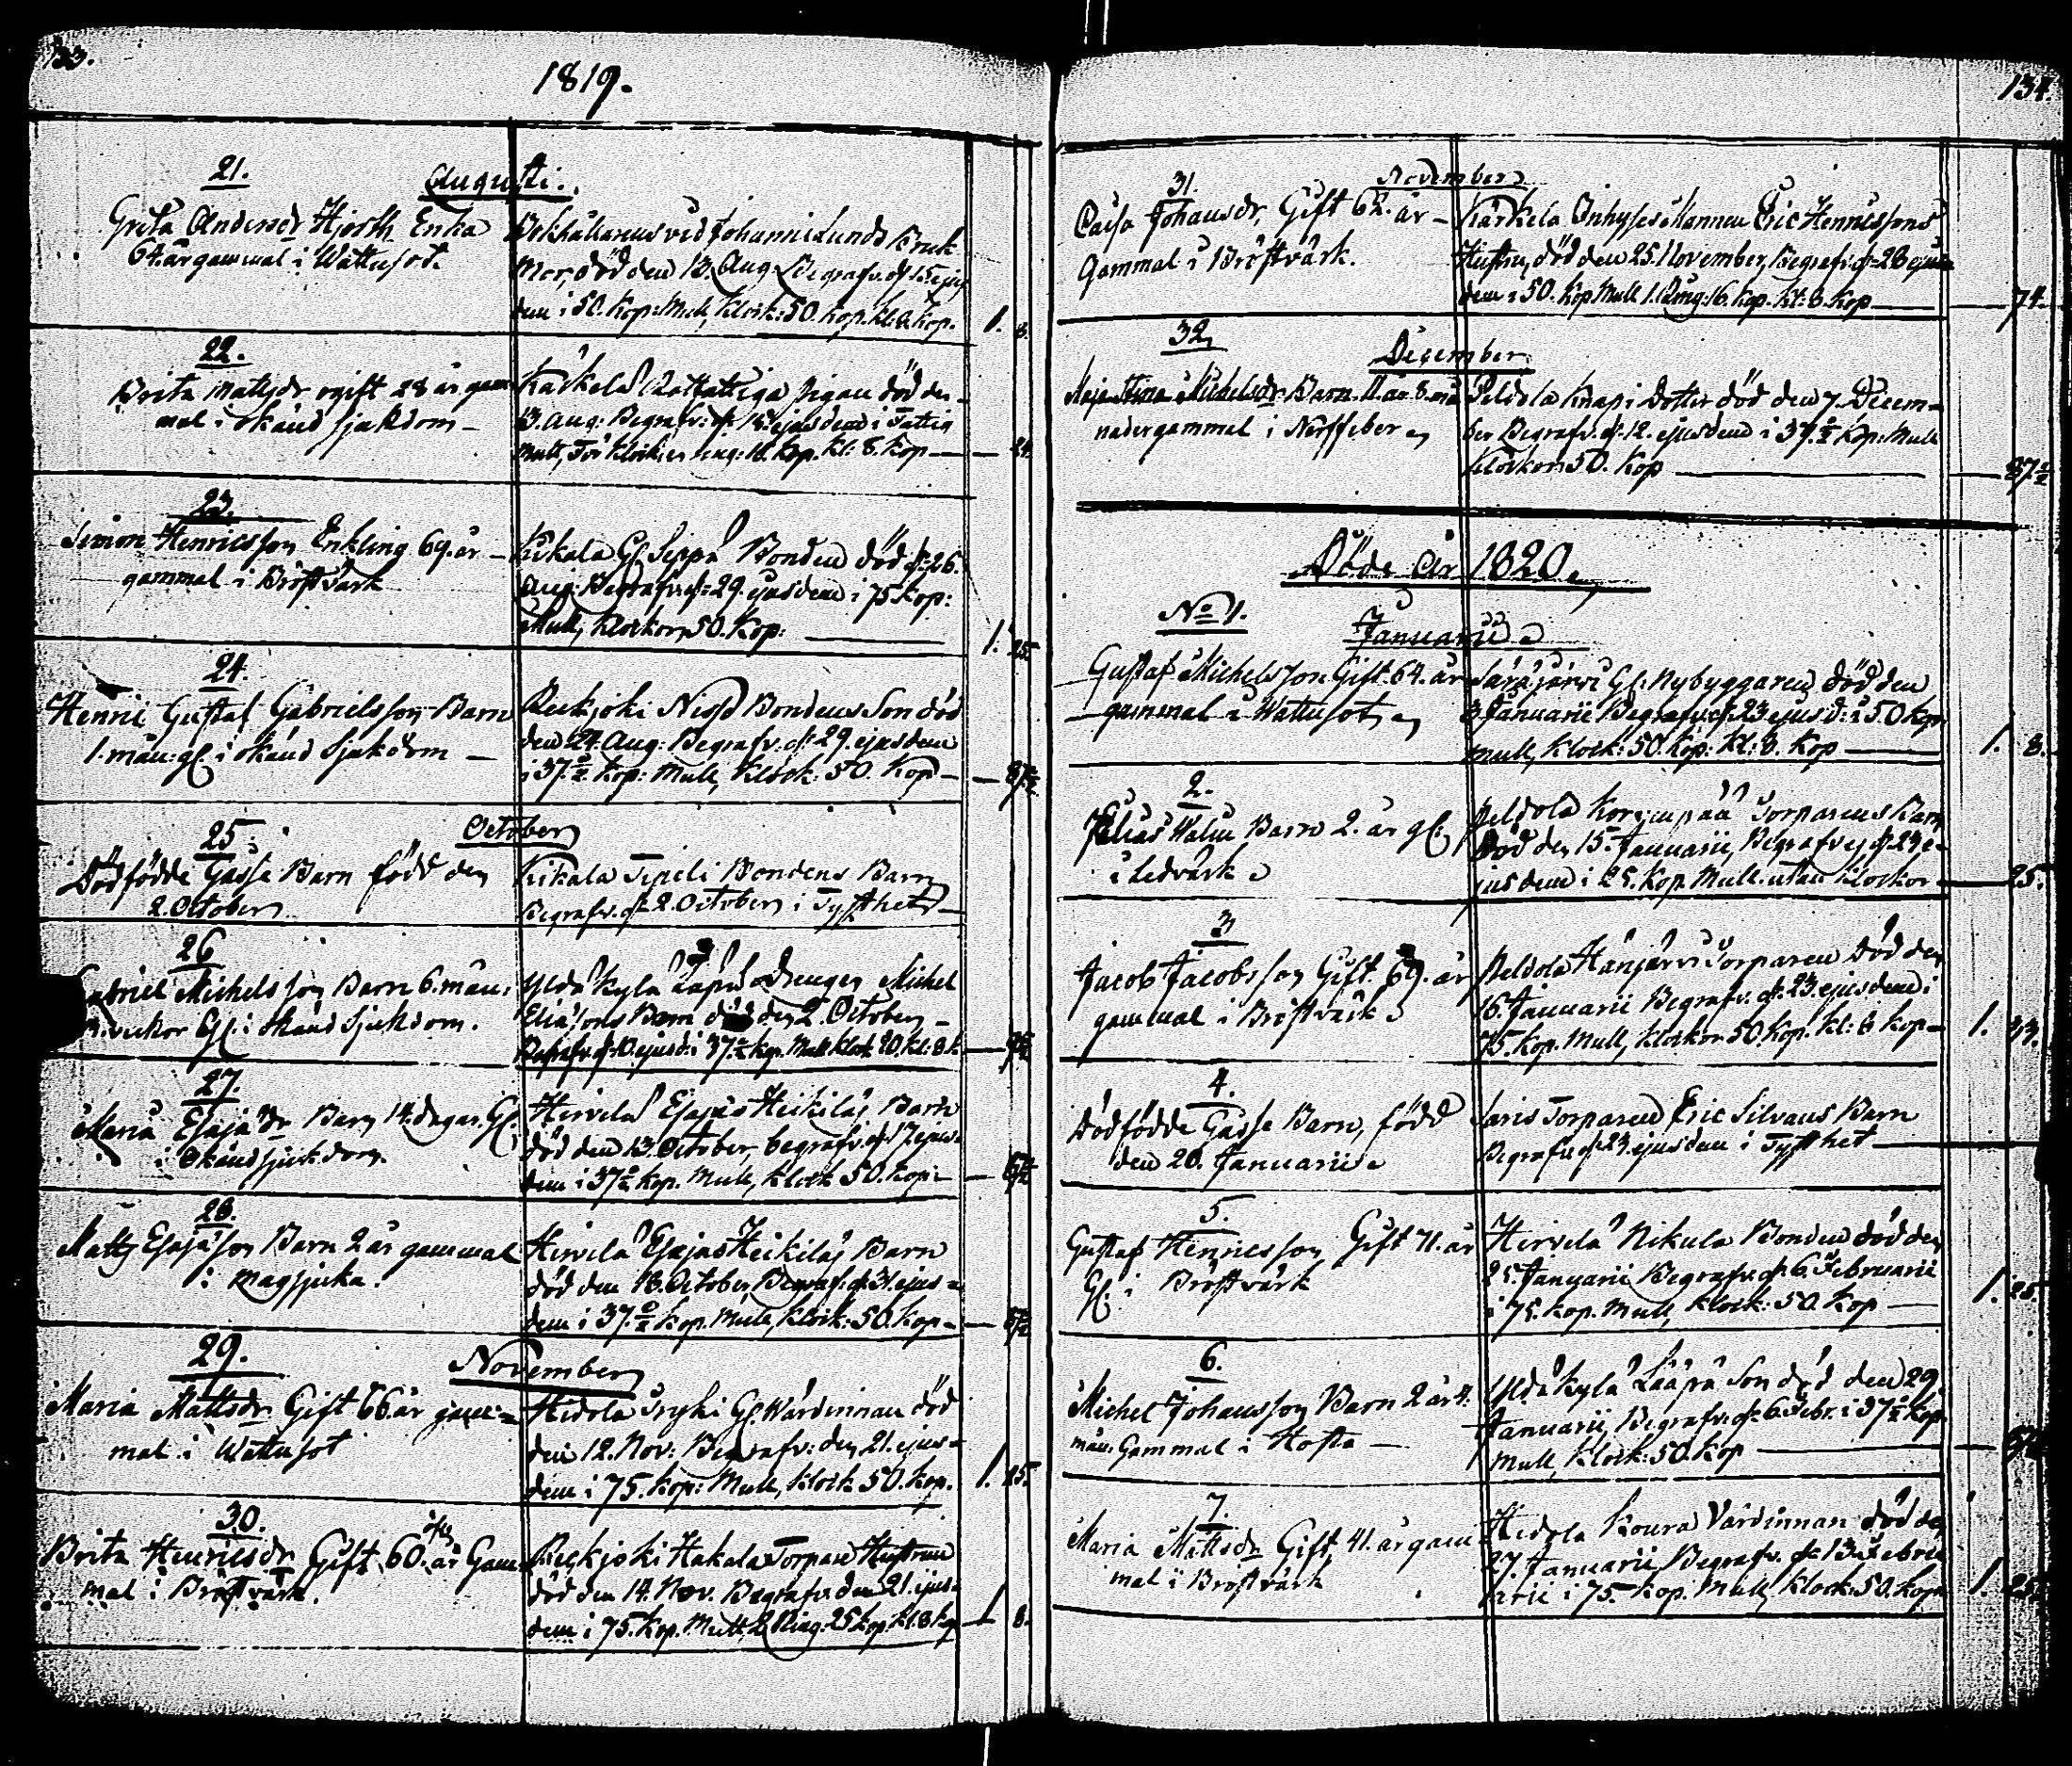 133.
1819.
21.
Augusti.
Greta Andersdr Hjorth Enka
64. år gammal i Wattusot.
Bokhållarens vid Johannislunds Bruk
Mor, död den 13. Aug. Begrafv. d. 15. ejus
dem i 50. Kop: Mull, Klock: 50. Kop. kl: 8. Kop.
1. 8.
22.
Brita Mattsdr ogift 28 år gam
mal i okänd sjukdom –
Karkela Pigan död den
13. Aug: Begrafv: d. 15. ejusdem i Fattig
Mull, ring: 16. Kop. kl: 8. Kop –
– 24.
23.
Simon Henricsson Enkling 69. år –
gammal i Bröstvärk
Kikala Gl. Seppä Bonden död d. 26.
Aug: Begrafv. d. 29. ejusdem i 75 Kop:
Mull, Klockor 50. Kop:
1. 25.
24.
Henric Gustaf Gabrielsson Barn
1. mån: gl. i okänd Sjukdom –
Rekjoki Bondens Son död
den 24. Aug: Begrafv. d. 29. ejusdem
i 37. ½ Kop: Mull, Klock: 50. Kop –
– 87 ½
25.
October
Dödfödde Gosse Barn född den
2. October
Kikala Sipeli Bondens Barn
Begrafv. d. 2. October i Tysthet –
26
Michelsson Barn 6. mån:
veckor Gl. i okänd Sjukdom.
Yldäkylä Drengen Michel
Eliäsons Barn död den 2. October –
Begrafv. d. 10. ejusd: i 37. ½ Kop. Mull Klock 20. kl: 8. k
27.
Maria Esajädr Barn 14. dagar. Gl.
i Okänd sjukdom.
Hirvelä Esajas Heikiläs Barn
död den 13. October, begrafv. d. 17. ejus-
dem i 37 ½ Kop. Mull, Klock 50. Kop: –
87 ½
28.
Matts Esajäson Barn 2 år gammal
i Magsjuka.
Hirvelä Esajas Heikiläs Barn
död den 18. October, Begraf. d. 31. ejus-
dem i 37. ½ Kop. Mull, Klock: 50. Kop –
– 87 ½
29.
November
Maria Mattsdr Gift 66. år gam-
mal i Wattusot
Hidola Gl. Wärdinnan död
den 12. Nov: Begrafv: den 21. ejus-
dem i 75. Kop: Mull, Klock 50. Kop.
1. 25.
30.
Brita Henricsdr Gift 60. år Gam-
mal i Bröstvärk.
Rekjoki Hakala Torpare Hustrun
död den 14. Nov. Begrafv. den 21. ejus-
dem i 75. Kop. Mull, 2 Ring: 25 Kop. kl. 8 kop –
1. 8.
134.
31.
November
Caisa Johansdr, Gift 62. år –
Gammal i Bröstvärk.
Kärkela Inhyses Mannen Eric Henricssons
Hustru, död den 25. November, Begrafv. d. 28 ejus
dem i 50. Kop Mull 1. Ring: 16. Kop. kl: 8. Kop
74.
32.
December
Maja Stina Michelsdr Barn 11. år 8. må
nader gammal i Nerffeber
Peldola Knapi Dotter död den 7. Decem-
ber Begrafv. d. 12. ejusdem i 37. ½ Kop: Mull
Klockor 50. Kop
87. ½
Döde År 1820
No 1.
Januarii
Gustaf Michelsson Gift 64. år
gammal i Wattusot
Särajärvi Gl. Nybyggaren död den
3 Januarii Begrafv. d. 23 ejusd: i 50 Kop
Mull, Klock: 50. Kop. kl: 8. Kop
1. 8.
2.
Elias Barn 2. år gl:
i Ledvärk
Peldola Torparens Barn
död den 15. Januarii, Begrafv. d. 23 e-
jusdem i 25. Kop. Mull. utan Klockor
25.
3
Jacob Jacobsson Gift. 69. år
gammal i Bröstvärk
Peldola Hanjärvi Torparen död den
16. Januarii Begrafv. d. 23. ejusdem i
75. Kop. Mull, Klockor 50 Kop. kl: 8 kop –
1. 33.
4.
Dödfödde Gosse Barn, född
den 20. Januarii
Saris Torparen Eric Silvans Barn
Begrafv. d. 23. ejusdem i Tysthet
5.
Gustaf Henricsson Gift 71. år
Gl. i Bröstvärk
Hirvelä Nikula Bonden död den
25. Januarii Begrafv. d. 6. Februarii
i 75. Kop. Mull, Klock: 50. Kop
1. 25.
6.
Michel Johansson Barn 2 år 4.
mån: Gammal i Hosta –
Yldäkylä Lääpä Son död den 29.
Januarii, Begrafv. d. 6. Febr. i 37 ½ Kop.
Mull, Klock: 50. Kop
7.
Maria Mattsdr Gift 41. år gam
mal i Bröstvärk
Hidola Koura Värdinnan död den
27. Januarii, Begrafv. d. 13. Febru
arii i 75. Kop. Mull, Klock: 50. Kop
1. 25.